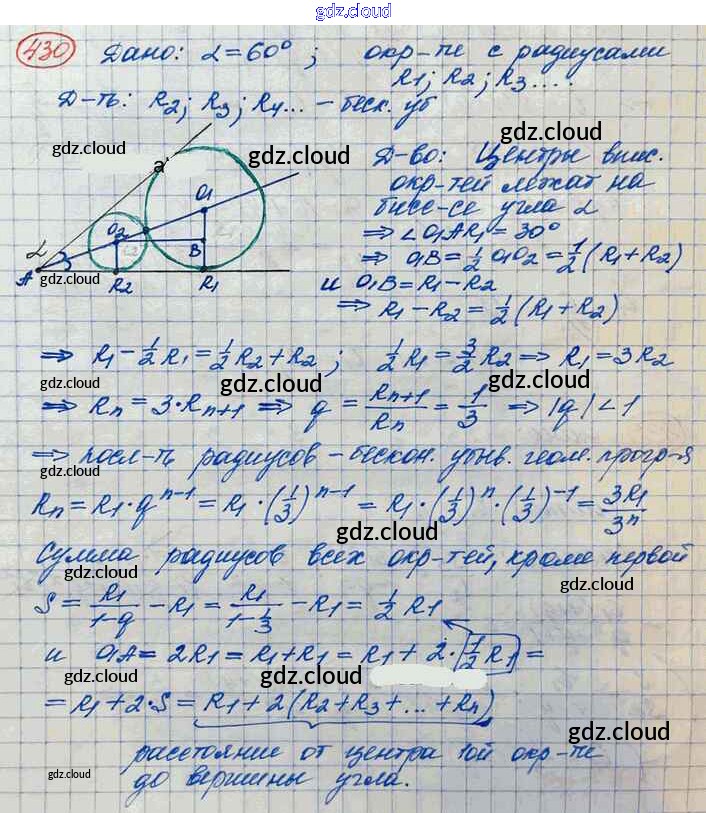 gdz.cloud
430 Дано: α = 60° ; окр-ти с радиусами
R1; R2; R3....
Д-ть: R2; R3; R4... - беск. уб
gdz.cloud
gdz.cloud
gdz.cloud
a
O1
O2
B
α
A
R2
R1
gdz.cloud
Д-во: Центры впис.
окр-тей лежат на
бисс-се угла α
⇒ ∠O1AR1 = 30°
⇒ O1B = 1/2 O1O2 = 1/2 (R1+R2)
и O1B = R1 - R2
⇒ R1 - R2 = 1/2 (R1+R2)
gdz.cloud
gdz.cloud
⇒ R1 - 1/2 R1 = 1/2 R2 + R2 ; 1/2 R1 = 3/2 R2 ⇒ R1 = 3R2
gdz.cloud
gdz.cloud
⇒ Rn = 3·Rn+1 ⇒ q = Rn+1/Rn = 1/3 ⇒ |q| < 1
gdz.cloud
⇒ посл-ть радиусов - бескон. убыв. геом. прогр-я
gdz.cloud
gdz.cloud
Rn = R1·q^(n-1) = R1·(1/3)^(n-1) = R1·(1/3)^n·(1/3)^(-1) = 3R1/3^n
gdz.cloud
Сумма радиусов всех окр-тей, кроме первой
gdz.cloud
gdz.cloud
S = R1/(1-q) - R1 = R1/(1-1/3) - R1 = 1/2 R1
gdz.cloud
и O1A = 2R1 = R1+R1 = R1 + 2·1/2 R1 =
gdz.cloud
= R1 + 2·S = R1 + 2(R2+R3+...+Rn)
gdz.cloud
расстояние от центра 1ой окр-ти
gdz.cloud
до вершины угла.